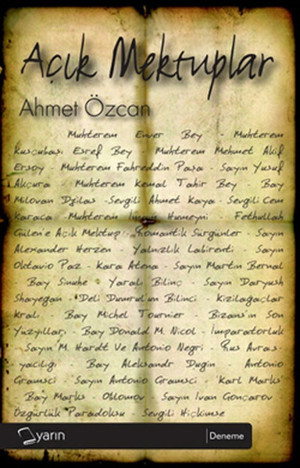 Açık Mektuplar
Ahmet Özcan
Muhterem Enver Bey - Muhterem
Kuşçubaşı Eşref Bey - Muhterem Mehmet Akif
Ersoy - Muhterem Fahreddin Paşa - Sayın Yusuf
Akçura - Muhterem Kemal Tahir Bey - Bay
Milovan Djilas - Sevgili Ahmet Kaya - Sevgili Cem
Karaca - Muhterem İmam Humeyni - Fethullah
Gülen'e Açık Mektup - Romantik Sürgünler - Sayın
Alexander Herzen - Yalnızlık Labirenti - Sayın
Oktavio Paz - Kara Atena - Sayın Martin Bernal
- Bay Sinuhe - Yaralı Bilinç - Sayın Daryush
Shayegan - "Deli Dumrul'un Bilinci - Kızılağaçlar
Kralı - Bay Michel Tournier - Bizans'ın Son
Yüzyılları - Bay Donald M. Nicol - İmparatorluk
- Sayın M. Hardt Ve Antonio Negri - Rus Avras-
yacılığı - Bay Aleksandr Dugin - Antonio
Gramsci - Sayın Antonio Gramsci - Karl Marks
- Bay Marks - Oblomov - Sayın Ivan Gonçarov
Özgürlük Paradoksu - Sevgili Hiçkimse
yarın
Deneme